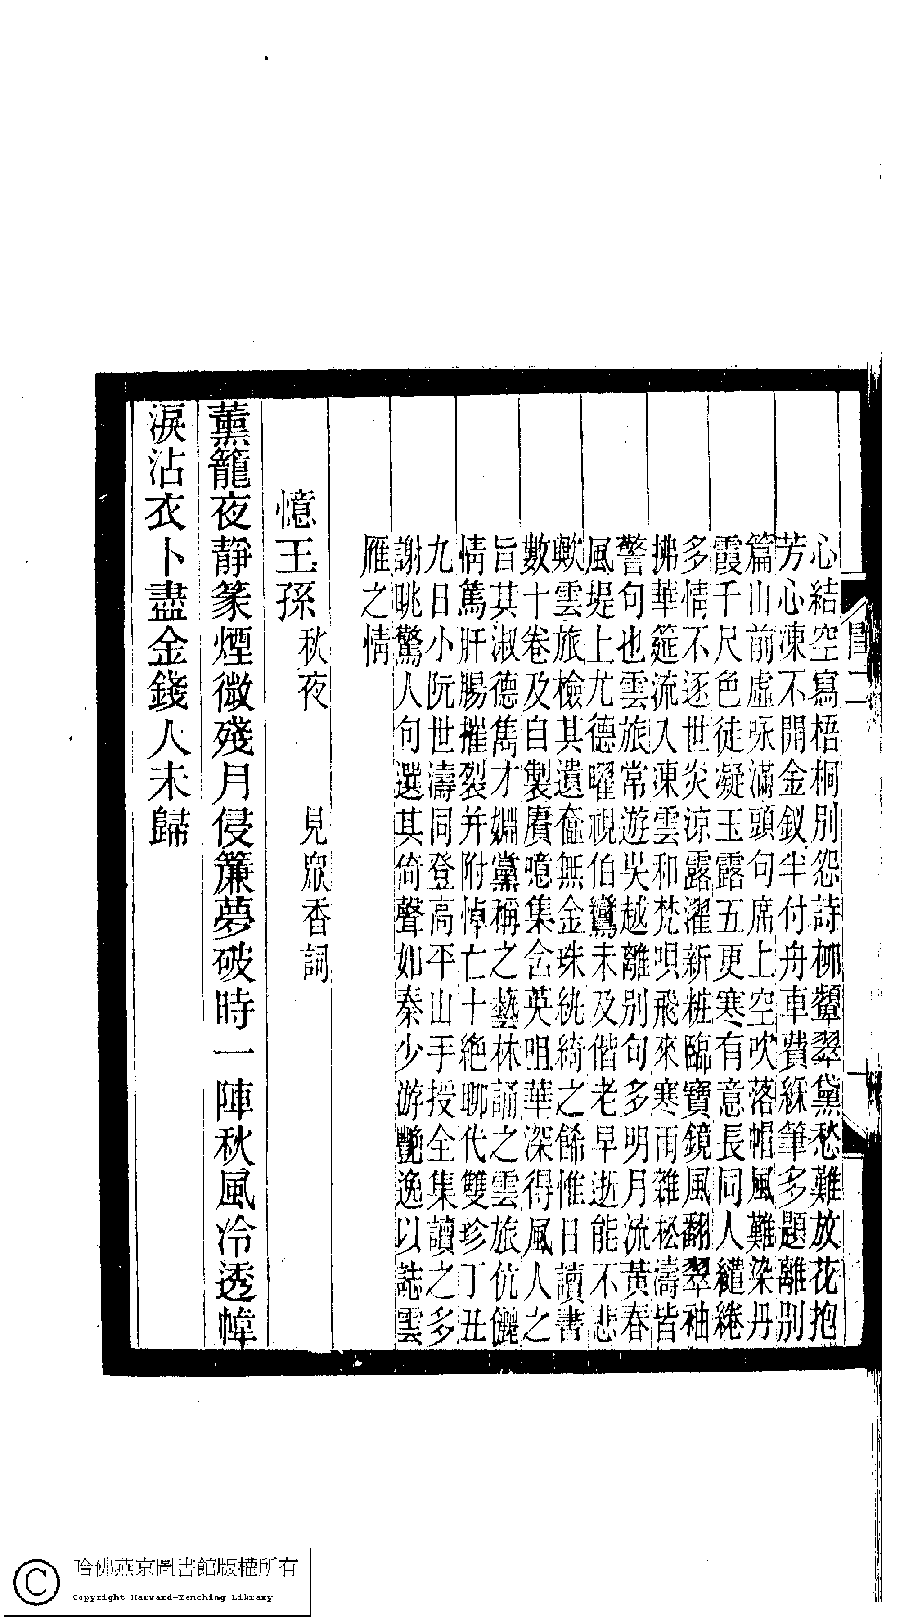 心結空寫梧桐別怨詩柳顰翠黛愁難放花抱
芳心凍不開金釵半付舟車費綵筆多題離別
篇山前虛咏滿頭句席上空吹落帽風難染丹
霞千尺色徒凝玉露五更寒有意長同人繾綣
多情不逐世炎涼露濯新粧臨寶鏡風翻翠袖
拂華筵流入凍雲和梵唄飛來寒雨雜松濤皆
警句也雲旅常遊吳越離別句多明月流黃春
風堤上尤德曜視伯鸞未及偕老早逝能不悲
歟雲旅檢其遺奩無金珠絖綺之餙惟日讀書
數十卷及自製賡噫集含英咀華深得風人之
旨其淑德雋才婣黨稱之藝林誦之雲旅伉儷
情篤肝腸摧裂并附悼亡十絶聊代雙珍丁丑
九日小阮世濤同登高平山手授全集讀之多
謝眺驚人句選其倚聲如秦少游艷逸以誌雲
雁之情
憶王孫 秋夜 見㷼香詞
薰籠夜靜篆煙微殘月侵簾夢破時一陣秋風冷透幃
淚沾衣卜盡金錢人未歸
二
一
哈佛燕京圖書館版權所有
Copyright Harvard-Yenching Library